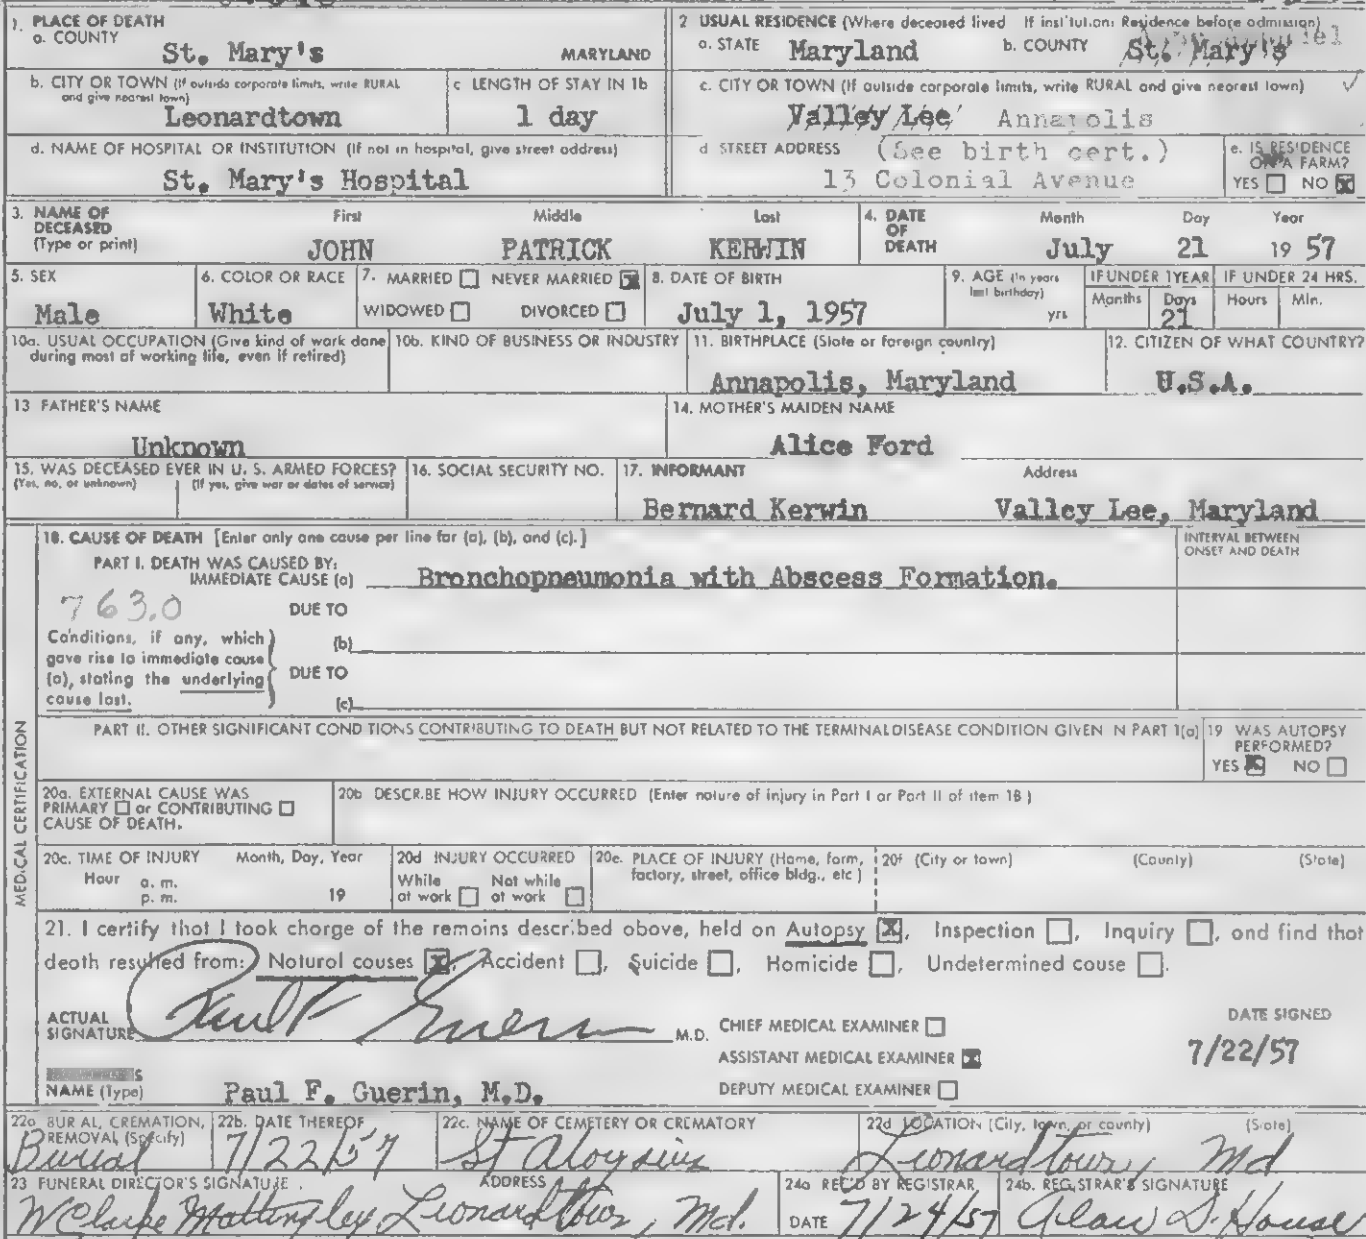 1. PLACE OF DEATH
a. COUNTY
St. Mary's MARYLAND
2 USUAL RESIDENCE (Where deceased lived If institution: Residence before admission)
a. STATE Maryland b. COUNTY St. Mary's
b. CITY OR TOWN (If outside corporate limits, write RURAL and give nearest town)
Leonardtown
c LENGTH OF STAY IN 1b
1 day
c. CITY OR TOWN (If outside corporate limits, write RURAL and give nearest town)
Valley Lee Annapolis
d. NAME OF HOSPITAL OR INSTITUTION (If not in hospital, give street address)
St. Mary's Hospital
d STREET ADDRESS (See birth cert.)
13 Colonial Avenue
e. IS RESIDENCE
ON A FARM?
YES NO
3. NAME OF
DECEASED
(Type or print)
First Middle Last
JOHN PATRICK KERWIN
4. DATE
OF
DEATH
Month Day Year
July 21 19 57
5. SEX
Male
6. COLOR OR RACE
White
7. MARRIED NEVER MARRIED
WIDOWED DIVORCED
8. DATE OF BIRTH
July 1, 1957
9. AGE (In years
last birthday)
yrs
IF UNDER 1 YEAR
Months Days
21
IF UNDER 24 HRS.
Hours Min.
10a. USUAL OCCUPATION (Give kind of work done
during most of working life, even if retired)
10b. KIND OF BUSINESS OR INDUSTRY
11. BIRTHPLACE (State or foreign country)
Annapolis, Maryland
12. CITIZEN OF WHAT COUNTRY?
U.S.A.
13 FATHER'S NAME
Unknown
14. MOTHER'S MAIDEN NAME
Alice Ford
15. WAS DECEASED EVER IN U. S. ARMED FORCES?
(Yes, no, or unknown) (If yes, give war or dates of service)
16. SOCIAL SECURITY NO.
17. INFORMANT Address
Bernard Kerwin Valley Lee, Maryland
18. CAUSE OF DEATH [Enter only one cause per line for (a), (b), and (c).]
INTERVAL BETWEEN
ONSET AND DEATH
PART I. DEATH WAS CAUSED BY:
IMMEDIATE CAUSE (a) Bronchopneumonia with Abscess Formation.
763.0 DUE TO
Conditions, if any, which
gave rise to immediate cause
(a), stating the underlying
cause last.
(b)
DUE TO
(c)
MEDICAL CERTIFICATION
PART II. OTHER SIGNIFICANT CONDITIONS CONTRIBUTING TO DEATH BUT NOT RELATED TO THE TERMINAL DISEASE CONDITION GIVEN IN PART I(a)
19 WAS AUTOPSY
PERFORMED?
YES NO
20a. EXTERNAL CAUSE WAS
PRIMARY or CONTRIBUTING
CAUSE OF DEATH.
20b DESCRIBE HOW INJURY OCCURRED (Enter nature of injury in Part I or Part II of item 18)
20c. TIME OF INJURY Month, Day, Year
Hour a. m.
p. m. 19
20d INJURY OCCURRED
While at work Not while at work
20e. PLACE OF INJURY (Home, farm,
factory, street, office bldg., etc)
20f (City or town) (County) (State)
21. I certify that I took charge of the remains described above, held on Autopsy X, Inspection, Inquiry, and find that
death resulted from: Natural causes X, Accident, Suicide, Homicide, Undetermined cause.
ACTUAL
SIGNATURE Paul F Guerin M.D.
CHIEF MEDICAL EXAMINER
ASSISTANT MEDICAL EXAMINER
DEPUTY MEDICAL EXAMINER
DATE SIGNED
7/22/57
NAME (Type) Paul F. Guerin, M.D.
22a BURIAL, CREMATION,
REMOVAL (Specify)
Burial
22b. DATE THEREOF
7/22/57
22c. NAME OF CEMETERY OR CREMATORY
St Aloysius
22d LOCATION (City, town, or county) (State)
Leonardtown, Md
23 FUNERAL DIRECTOR'S SIGNATURE ADDRESS
W Clarke Mattingley Leonardtown, Md.
24a REC'D BY REGISTRAR
DATE 7/24/57
24b. REGISTRAR'S SIGNATURE